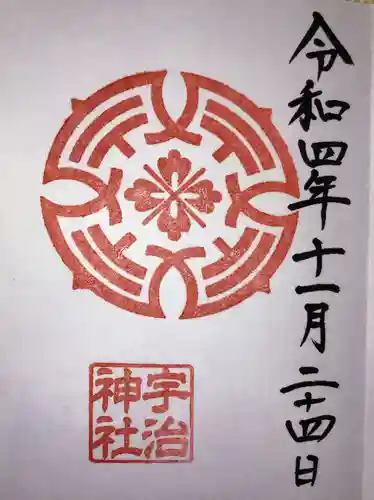 令和四年十一月二十四日
宇治
神社